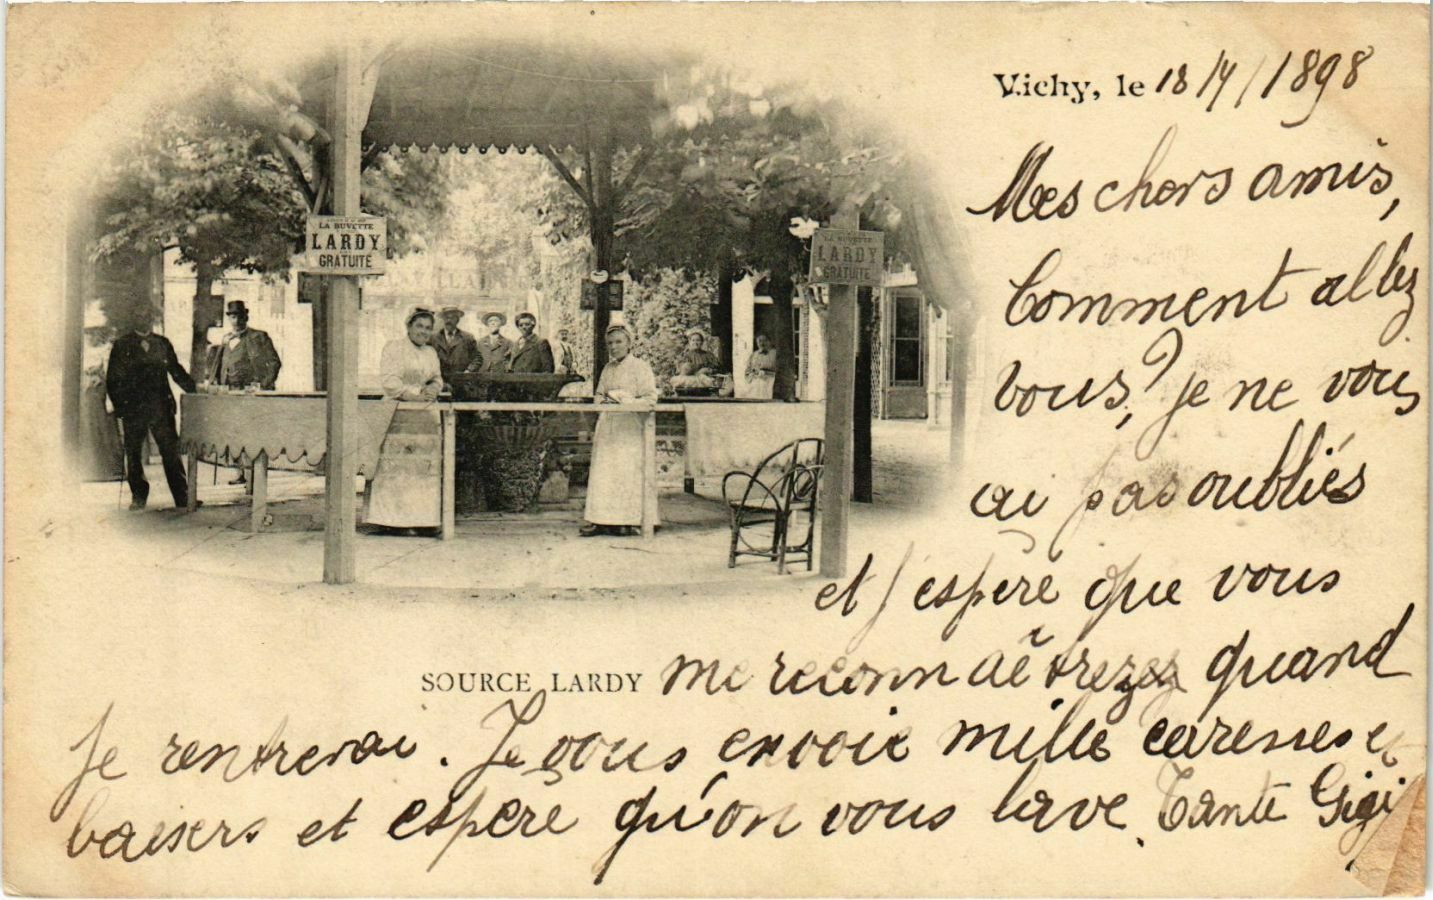 Vichy, le 18/7/1898
Mes chers amis,
Comment allez
vous? je ne vous
ai pas oubliés
et j'espère que vous
me reconnaêtrezez quand
je rentrerai. Je vous envoie mille caresses et
baisers et espère qu'on vous lave. Tante Gigi
SOURCE LARDY
LA BUVETTE
LARDY
EST
GRATUITE
LA BUVETTE
LARDY
EST
GRATUITE